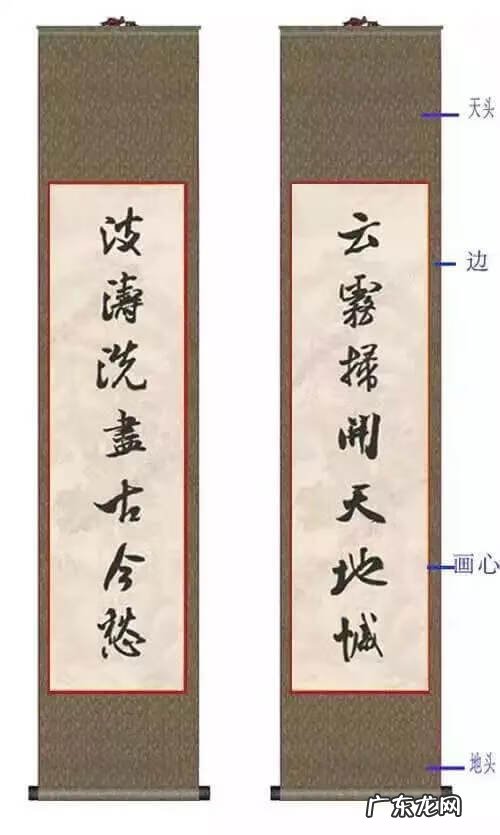 云霧掃開天地憾
波濤洗盡古今愁
天头
边
画心
地头
广东龙网